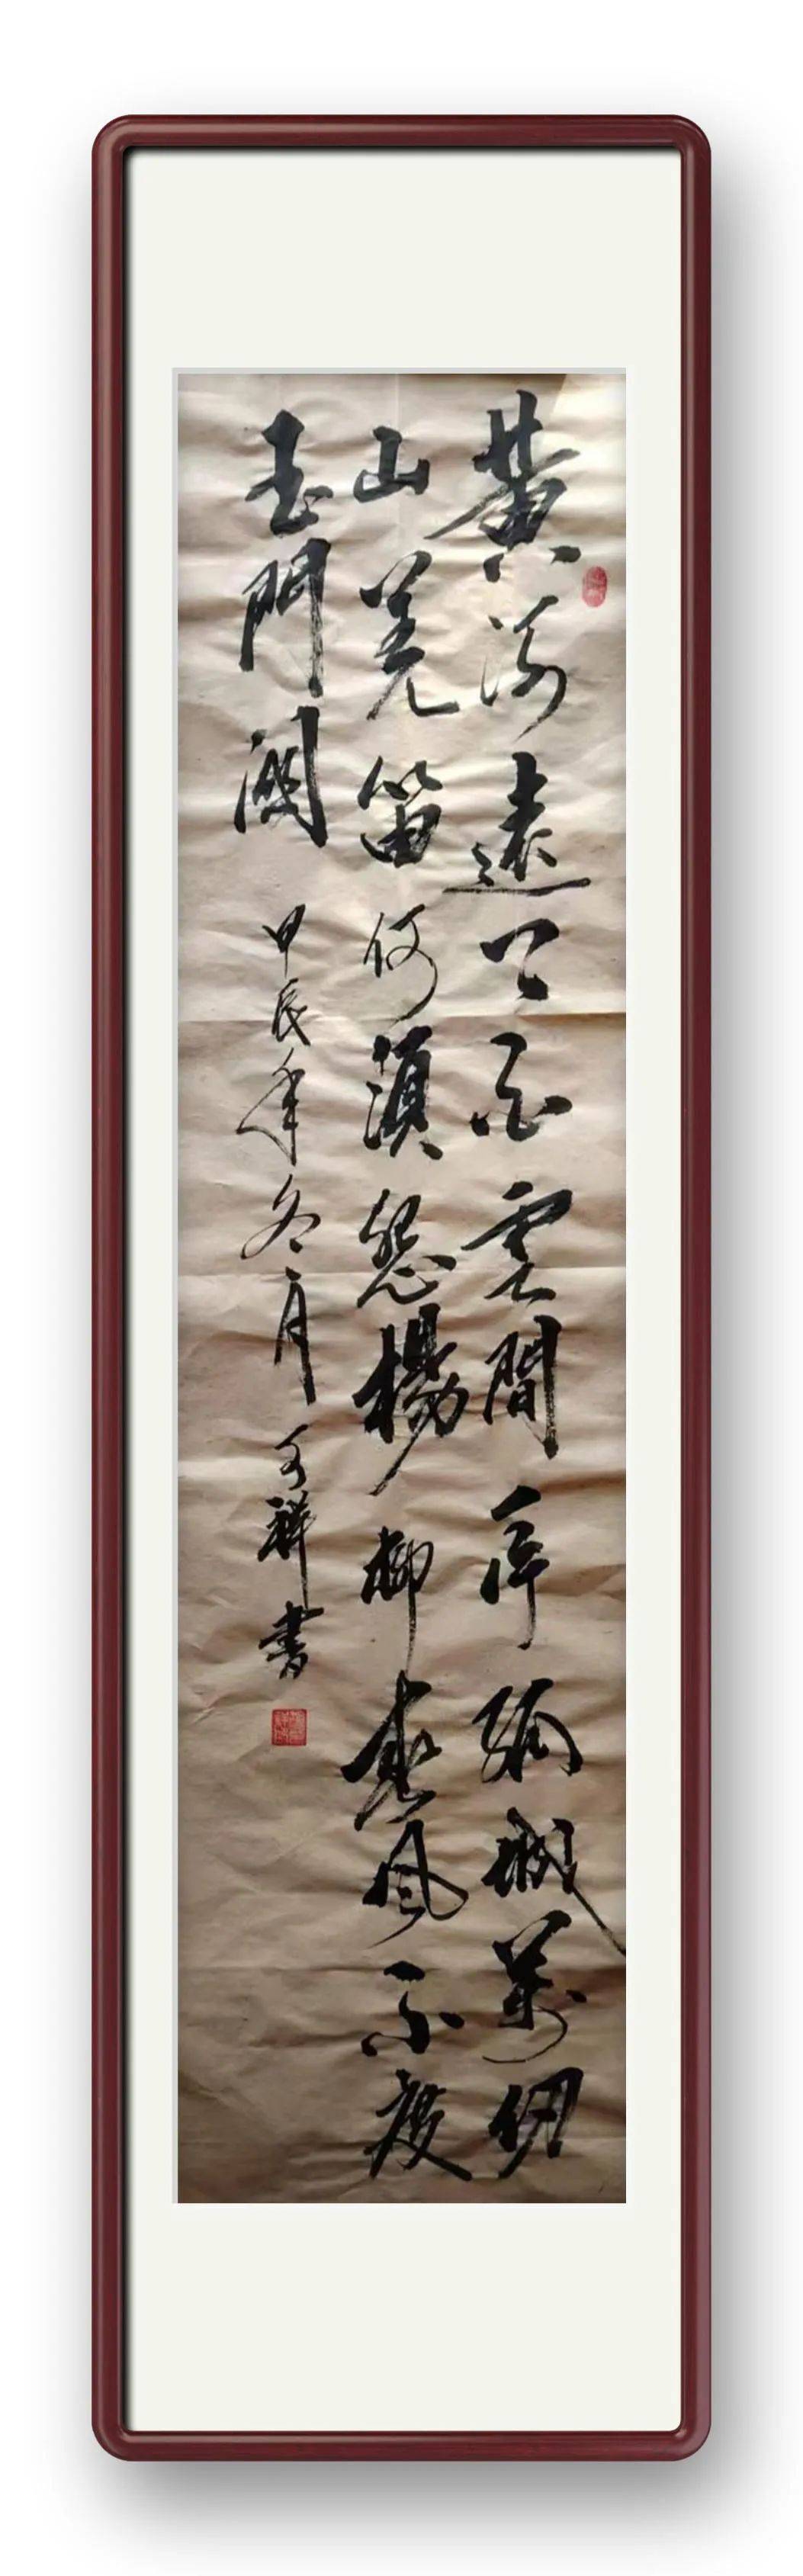 黄河遠上白雲間一片孤城萬仞
山羌笛何須怨楊柳春風不度
玉門關 甲辰年冬月 可祥書